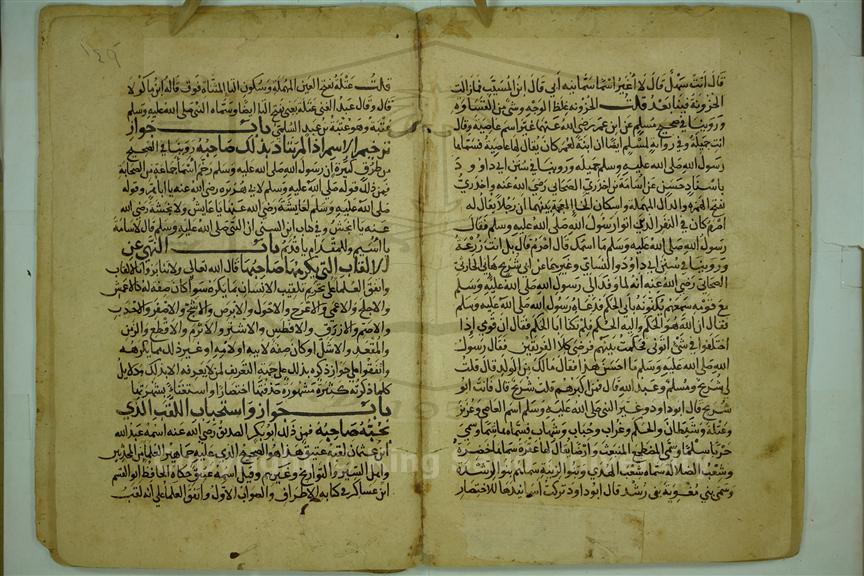 قال أنت سهل قال لا أغير اسما سمانيه أبي قال ابن المسيب فما زالت
الحزونة فينا بعد قلت الحزونة غلظ الوجه وشيء من القساوة
وروينا في صحيح مسلم عن ابن عمر رضي الله عنهما غير اسم عاصية وقال
أنت جميلة وفي رواية لمسلم أيضا أن ابنة لعمر كان يقال لها عاصية فسماها
رسول الله صلى الله عليه وسلم جميلة وروينا في سنن أبي داود
باسناد حسن عن أسامة بن أخدري الصحابي رضي الله عنه وأخدري
بفتح الهمزة والدال المهملة واسكان الخاء المعجمة بينهما أن رجلا يقال له
أصرم كان في النفر الذي أتوا رسول الله صلى الله عليه وسلم فقال
رسول الله صلى الله عليه وسلم ما اسمك قال أصرم قال بل أنت زرعة
وروينا في سنن أبي داود والنسائي وغيرهما عن أبي شريح هاني الحارثي
الصحابي رضي الله عنه أنه لما وفد الى رسول الله صلى الله عليه وسلم
مع قومه سمعهم يكنونه بأبي الحكم فدعاه رسول الله صلى الله عليه وسلم
فقال ان الله هو الحكم واليه الحكم فلم تكنا أبا الحكم فقال ان قومي إذا
اختلفوا في شيء أتوني فحكمت بينهم فرضي كلا الفريقين فقال رسول
الله صلى الله عليه وسلم ما أحسن هذا فما لك من الولد قال قلت
لي شريح ومسلم وعبد الله قال فمن أكبرهم قلت شريح قال فأنت أبو
شريح قال أبو داود وغير النبي صلى الله عليه وسلم اسم العاصي وعزيز
وعتلة وشيطان والحكم وغراب وحباب وشهاب فسماه هاشما وسمى
حربا سلما وسمى المضطجع المنبعث وأرضا يقال لها عفرة سماها خضرة
وشعب الضلالة سماه شعب الهدى وبنو الزنية سماهم بنو الرشدة
وسمى بني مغوية بني رشد قال أبو داود تركت أسانيدها للاختصار
١٤٩
قلت عتلة بفتح العين المهملة وسكون التاء المثناة فوق قاله ابن ماكولا
قال وقال عبد الغني عتلة يعني بفتح التاء أيضا وسماه النبي صلى الله عليه وسلم
عتبة وهو عتبة بن عبد السلمي باب جواز
ترخيم الاسم إذا لم يتأذ بذلك صاحبه روينا في الصحيح
من طرق كثيرة أن رسول الله صلى الله عليه وسلم رخم أسماء جماعة من الصحابة
فمن ذلك قوله صلى الله عليه وسلم لأبي هريرة رضي الله عنه يا أبا هر وقوله
صلى الله عليه وسلم لعائشة رضي الله عنها يا عايش ولأنجشة رضي الله
عنه يا أنجش وفي كتاب ابن السني أن النبي صلى الله عليه وسلم قال لأسامة
يا أسيم وللمقدام يا قديم باب النهي عن
الألقاب التي يكرهها صاحبها قال الله تعالى ولا تنابزوا بالألقاب
واتفق العلماء على تحريم تلقيب الانسان بما يكره سواء كان صفة له كالأعمش
والأجلح والأعمى والأعرج والأحول والأبرص والأشج والأصفر والأحدب
والأصم والأزرق والأفطس والأشتر والأثرم والأقطع والزمن
والمقعد والأشل أو كان صفة لأبيه أو لأمه أو غير ذلك مما يكرهه
واتفقوا على جواز ذكره بذلك على جهة التعريف لمن لا يعرفه الا بذلك ودلايل
كلما ذكرته كثيرة مشهورة حذفتها اختصارا واستغناء بشهرتها
باب جواز واستحباب اللقب الذي
يحبه صاحبه فمن ذلك أبو بكر الصديق رضي الله عنه اسمه عبد الله
ابن عثمان لقبه عتيق هذا هو الصحيح الذي عليه جماهير العلماء من المحدثين
وأهل السير والتواريخ وغيرهم وقيل اسمه عتيق حكاه الحافظ أبو القسم
ابن عساكر في كتابه الأطراف والصواب الأول واتفق العلماء على أنه لقب